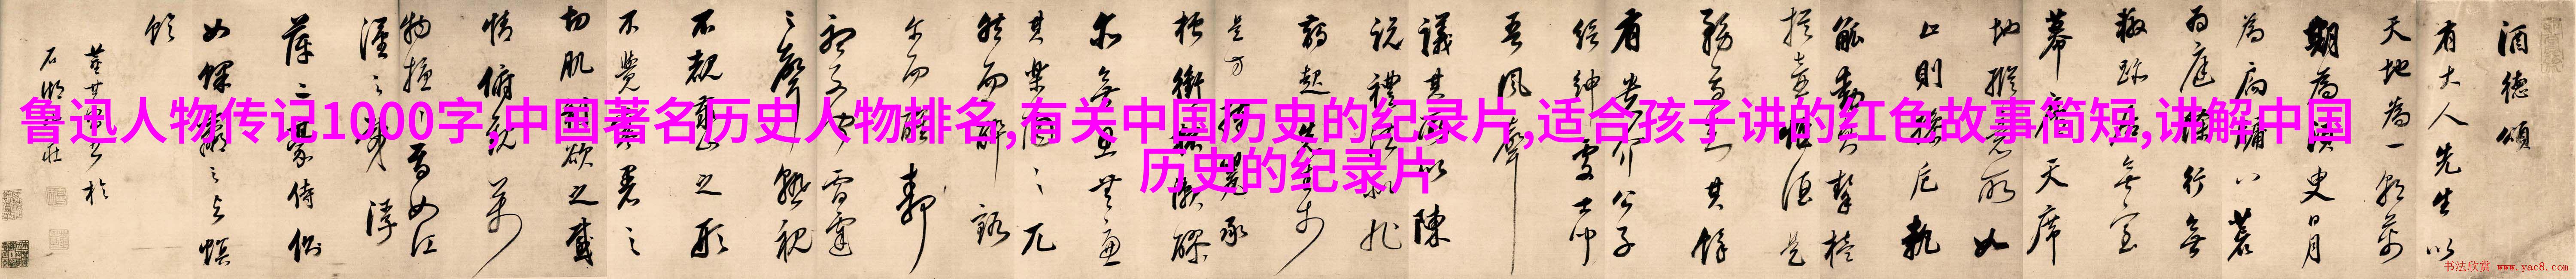 酒德頌
有大人先生以
天地為一朝萬
期為須臾日月
為扃牖八荒
為庭衢行無
轍跡居無室
幕天席
地縱意所如
止則操卮執
觚動則挈榼
提壺唯酒是
務焉知其餘
有貴介公子
縉紳處士
吾風聲
議其所以
陳說禮法
是
先生於
是方
承
槽銜杯漱醪
無思無慮
其樂陶陶兀
然而醉
爾而醒靜
聽不聞雷霆
之聲熟視
不覩泰山之形
不覺寒暑之
切肌利欲之感
情俯觀萬
物擾擾焉如江
漢之載浮
萍二豪侍側
如蜾蠃之與螟
蛉
董其昌書於
鲁迅人物传记1000字,中国著名历史人物排名,有关中国历史的纪录片,适合孩子讲的红色故事简短,讲解中国
历史的纪录片
书法欣赏 www.yac8.com